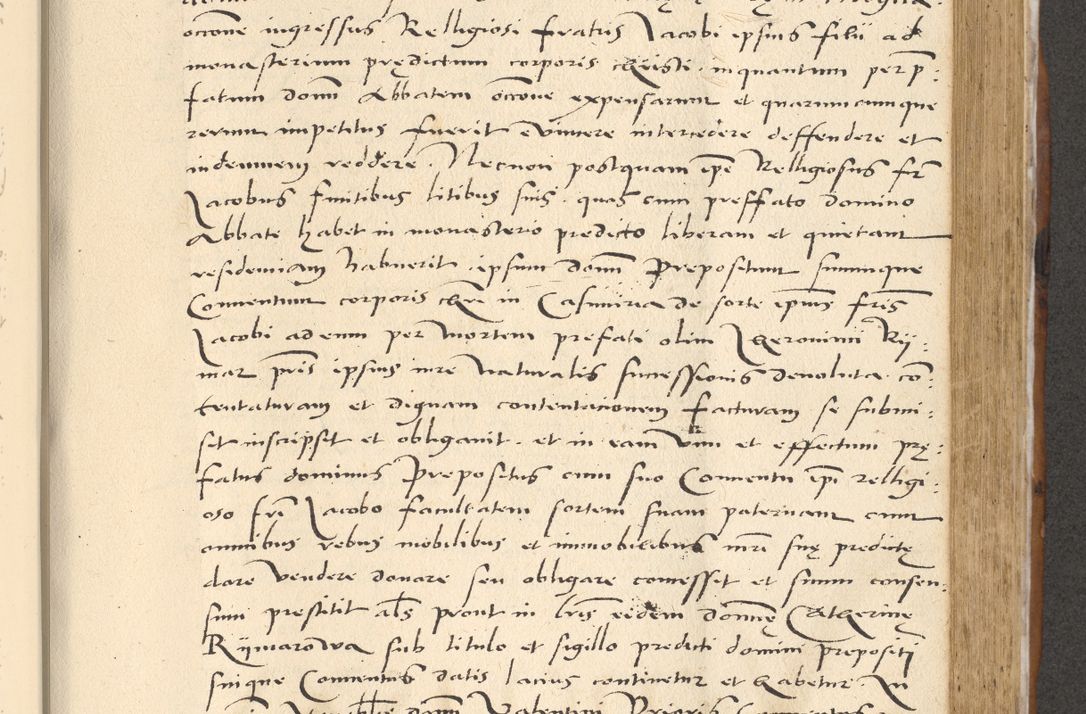 occōne ingressus Relligiosi fratris Jacobi ipsius filii ad
monasterium prędictum corporis christi inquantum per p̄:
fatum domī Abbatem occōne expensarum et quarumcumque
rerum impetitus fuerit evincere intercedere deffendere et
indemnem reddere. Necnon postquam ipē Relligiosus fr̄
Jacobus finitibus litibus suis quas cum preffato domino
Abbate habet in monasterio predicto liberam et quietam
residentiam habuerit ipsum domī Prepositum suumque
Conventum corporis chri in Casimiria de sorte ipīus fr̄is
Jacobi ad eum per mortem prefati olim Iheronimi Rij:
mar pr̄is ipsius iure naturalis successionis devoluta cō:
tentaturam et dignam contentacionem facturam se submi:
sit inscripsit et obligavit. et in eam vim et effectum prę:
fatus dominus Prepositus cum suo Conventu ip̄i relligi:
oso fr̄i Jacobo facultatem sortem suam paternam cum
omnibus rebus mobilibus et immobilibus mr̄i suę predictę
dare vendere donare seu obligare concesset et suum consen:
sum prestitit abs prout in lr̄is eędem domnę Catherinę
Rijmarowa sub titulo et sigillo predicti domini prepositi
suique Conventus datis lacius continetur et habetur. In
domī Valentini Prioris Conventus